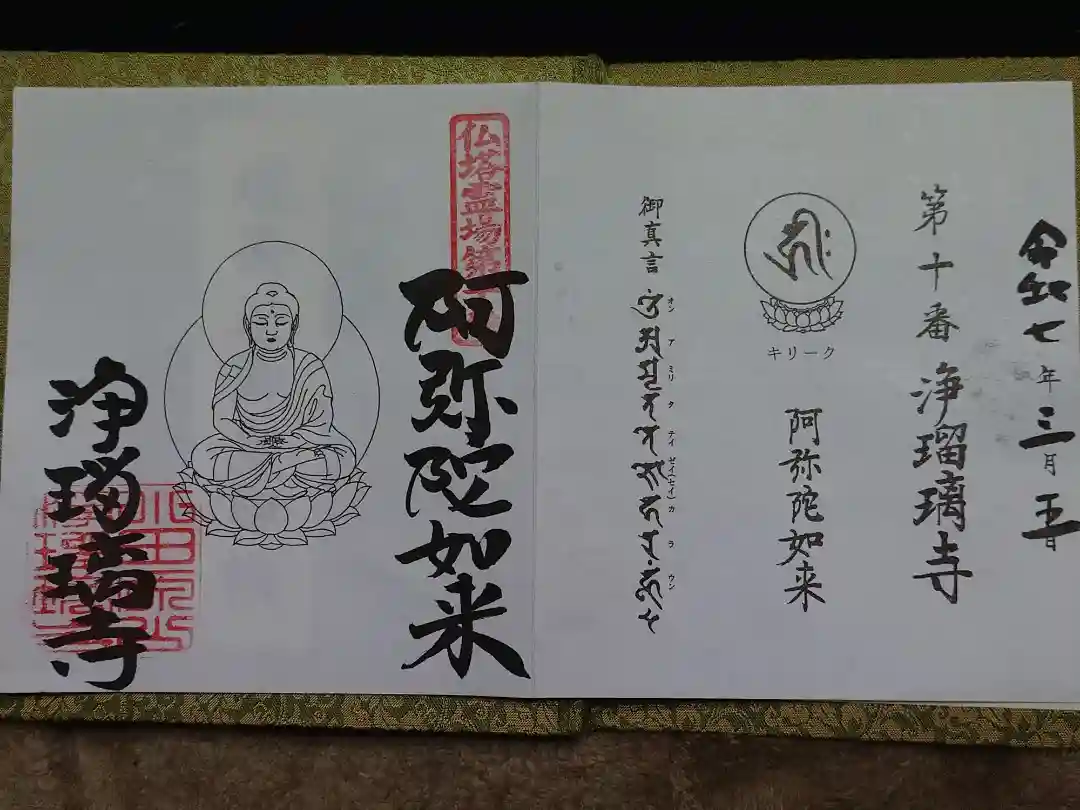 令和七年三月五日
第十番 浄瑠璃寺
キリーク
阿弥陀如来
御真言
オン ア ミリ タ テイ ゼイ(セイ) カ ラ ウン
仏塔霊場第十番
阿弥陀如来
浄瑠璃寺